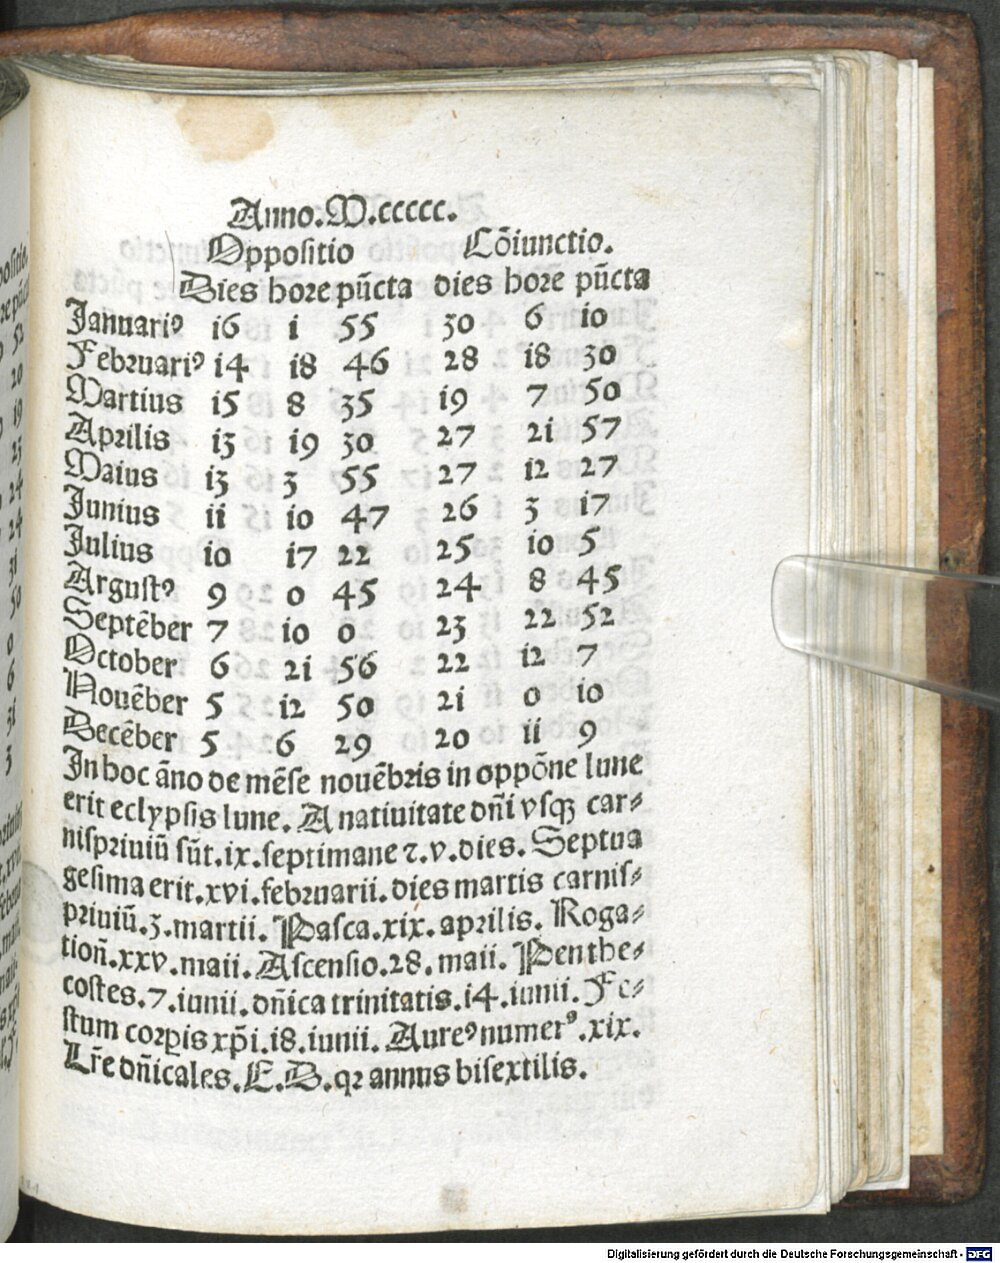 Anno.M.ccccc.
Oppositio Cōiunctio.
Dies hore pūcta dies hore pūcta
Januariꝰ i6 i 55 30 6 i0
Februariꝰ i4 i8 46 28 i8 30
Martius i5 8 35 i9 7 50
Aprilis i3 i9 30 27 2i 57
Maius i3 3 55 27 i2 27
Junius ii i0 47 26 3 i7
Julius i0 i7 22 25 i0 5
Argustꝰ 9 0 45 24 8 45
Septēber 7 i0 0 23 22 52
October 6 2i 56 22 i2 7
Nouēber 5 i2 50 2i 0 i0
Decēber 5 6 29 20 ii 9
In hoc āno de mēse nouēbris in oppōne lune
erit eclypsis lune. A natiuitate dn̄i vsqꝫ car⸗
nispriuiū sūt.ix.septimane ⁊.v.dies. Septua
gesima erit.xvi.februarii.dies martis carnis⸗
priuiū.3.martii. Pasca.xix.aprilis. Roga⸗
tion̄.xxv.maii. Ascensio.28.maii. Penthe⸗
costes.7.iunii.dn̄ica trinitatis.i4.iunii. Fe⸗
stum corꝑis xp̄i.i8.iunii. Aureꝰ numerꝰ.xix.
Lr̄e dn̄icales.E.D.qꝛ annus bisextilis.
Digitalisierung gefördert durch die Deutsche Forschungsgemeinschaft - DFG